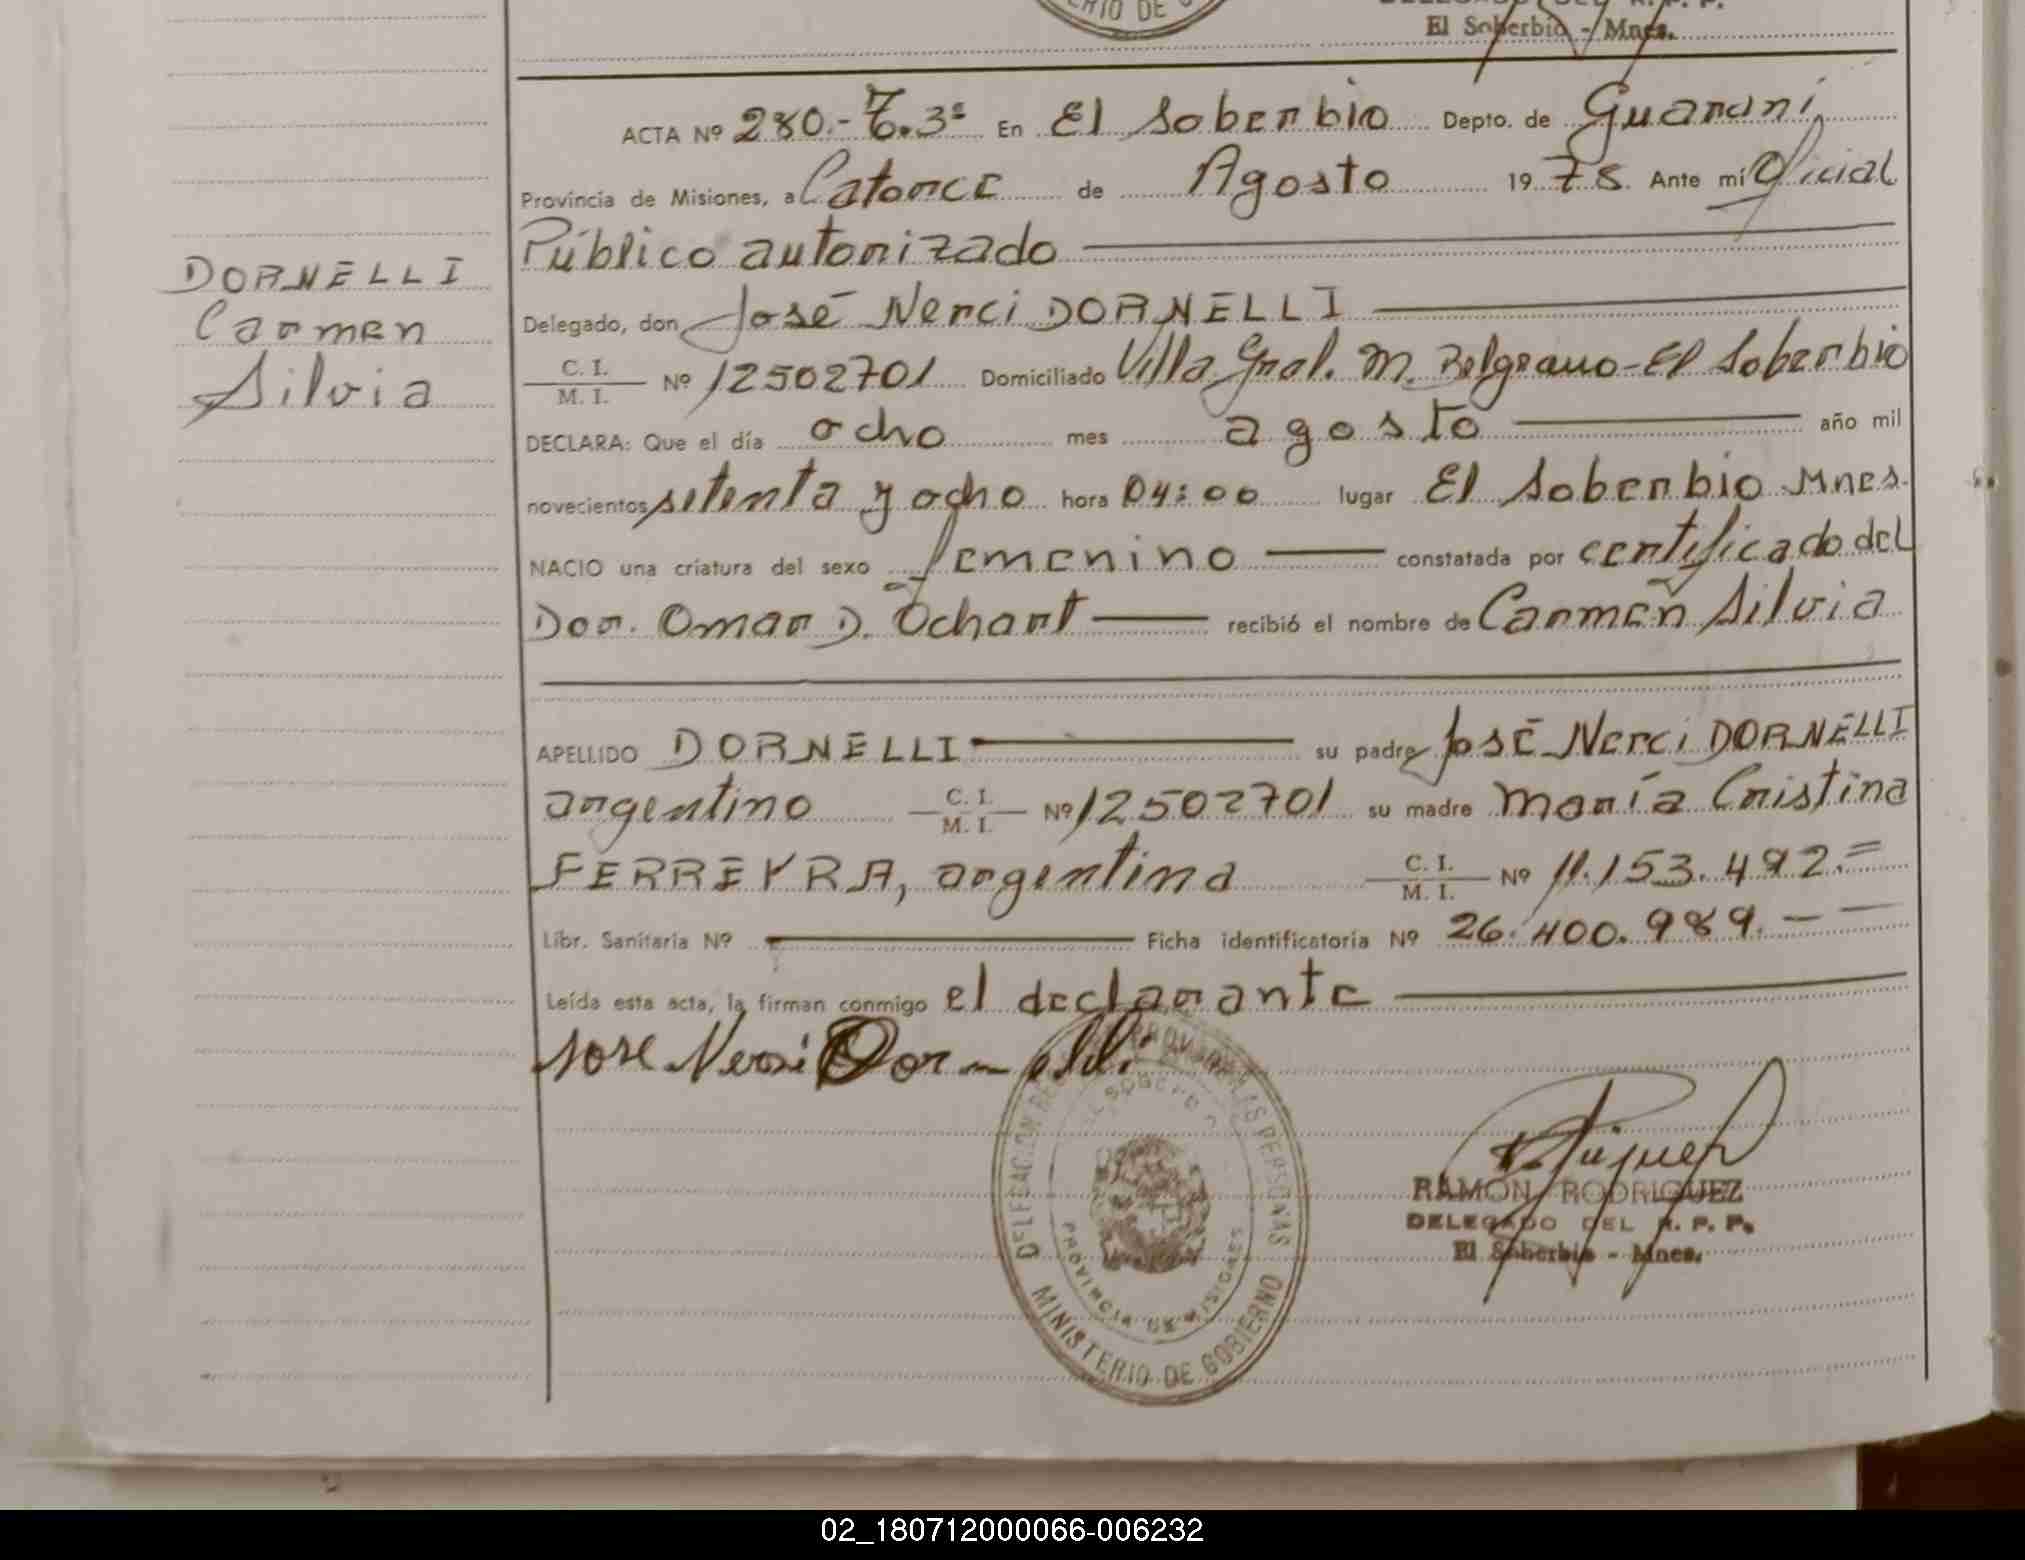 El Soberbio - Mnes.
ACTA Nº 280.- T. 3º En El Soberbio Depto. de Guaraní
Provincia de Misiones, a Catorce de Agosto 1978 Ante mí Oficial
Público autorizado
Delegado, don José Nerci DORNELLI
C. I.
M. I. Nº 12502701 Domiciliado Villa Gral. M. Belgrano - El Soberbio
DECLARA: Que el día ocho mes agosto año mil
novecientos setenta y ocho hora 04:00 lugar El Soberbio Mnes.
NACIO una criatura del sexo femenino constatada por certificado del
Dor. Omar D. Ochart recibió el nombre de Carmen Silvia
APELLIDO DORNELLI su padre José Nerci DORNELLI
argentino C. I.
M. I. Nº 12502701 su madre María Cristina
FERREYRA, argentina C. I.
M. I. Nº 11.153.492.=
Libr. Sanitaria Nº Ficha identificatoria Nº 26.400.989.- -
Leída esta acta, la firman conmigo el declarante
Jose Nersi Dornelli
DORNELLI
Carmen
Silvia
RAMÓN RODRIGUEZ
DELEGADO DEL R. P. P.
El Soberbio - Mnes.
PROVINCIA DE MISIONES
MINISTERIO DE GOBIERNO
02_180712000066-006232